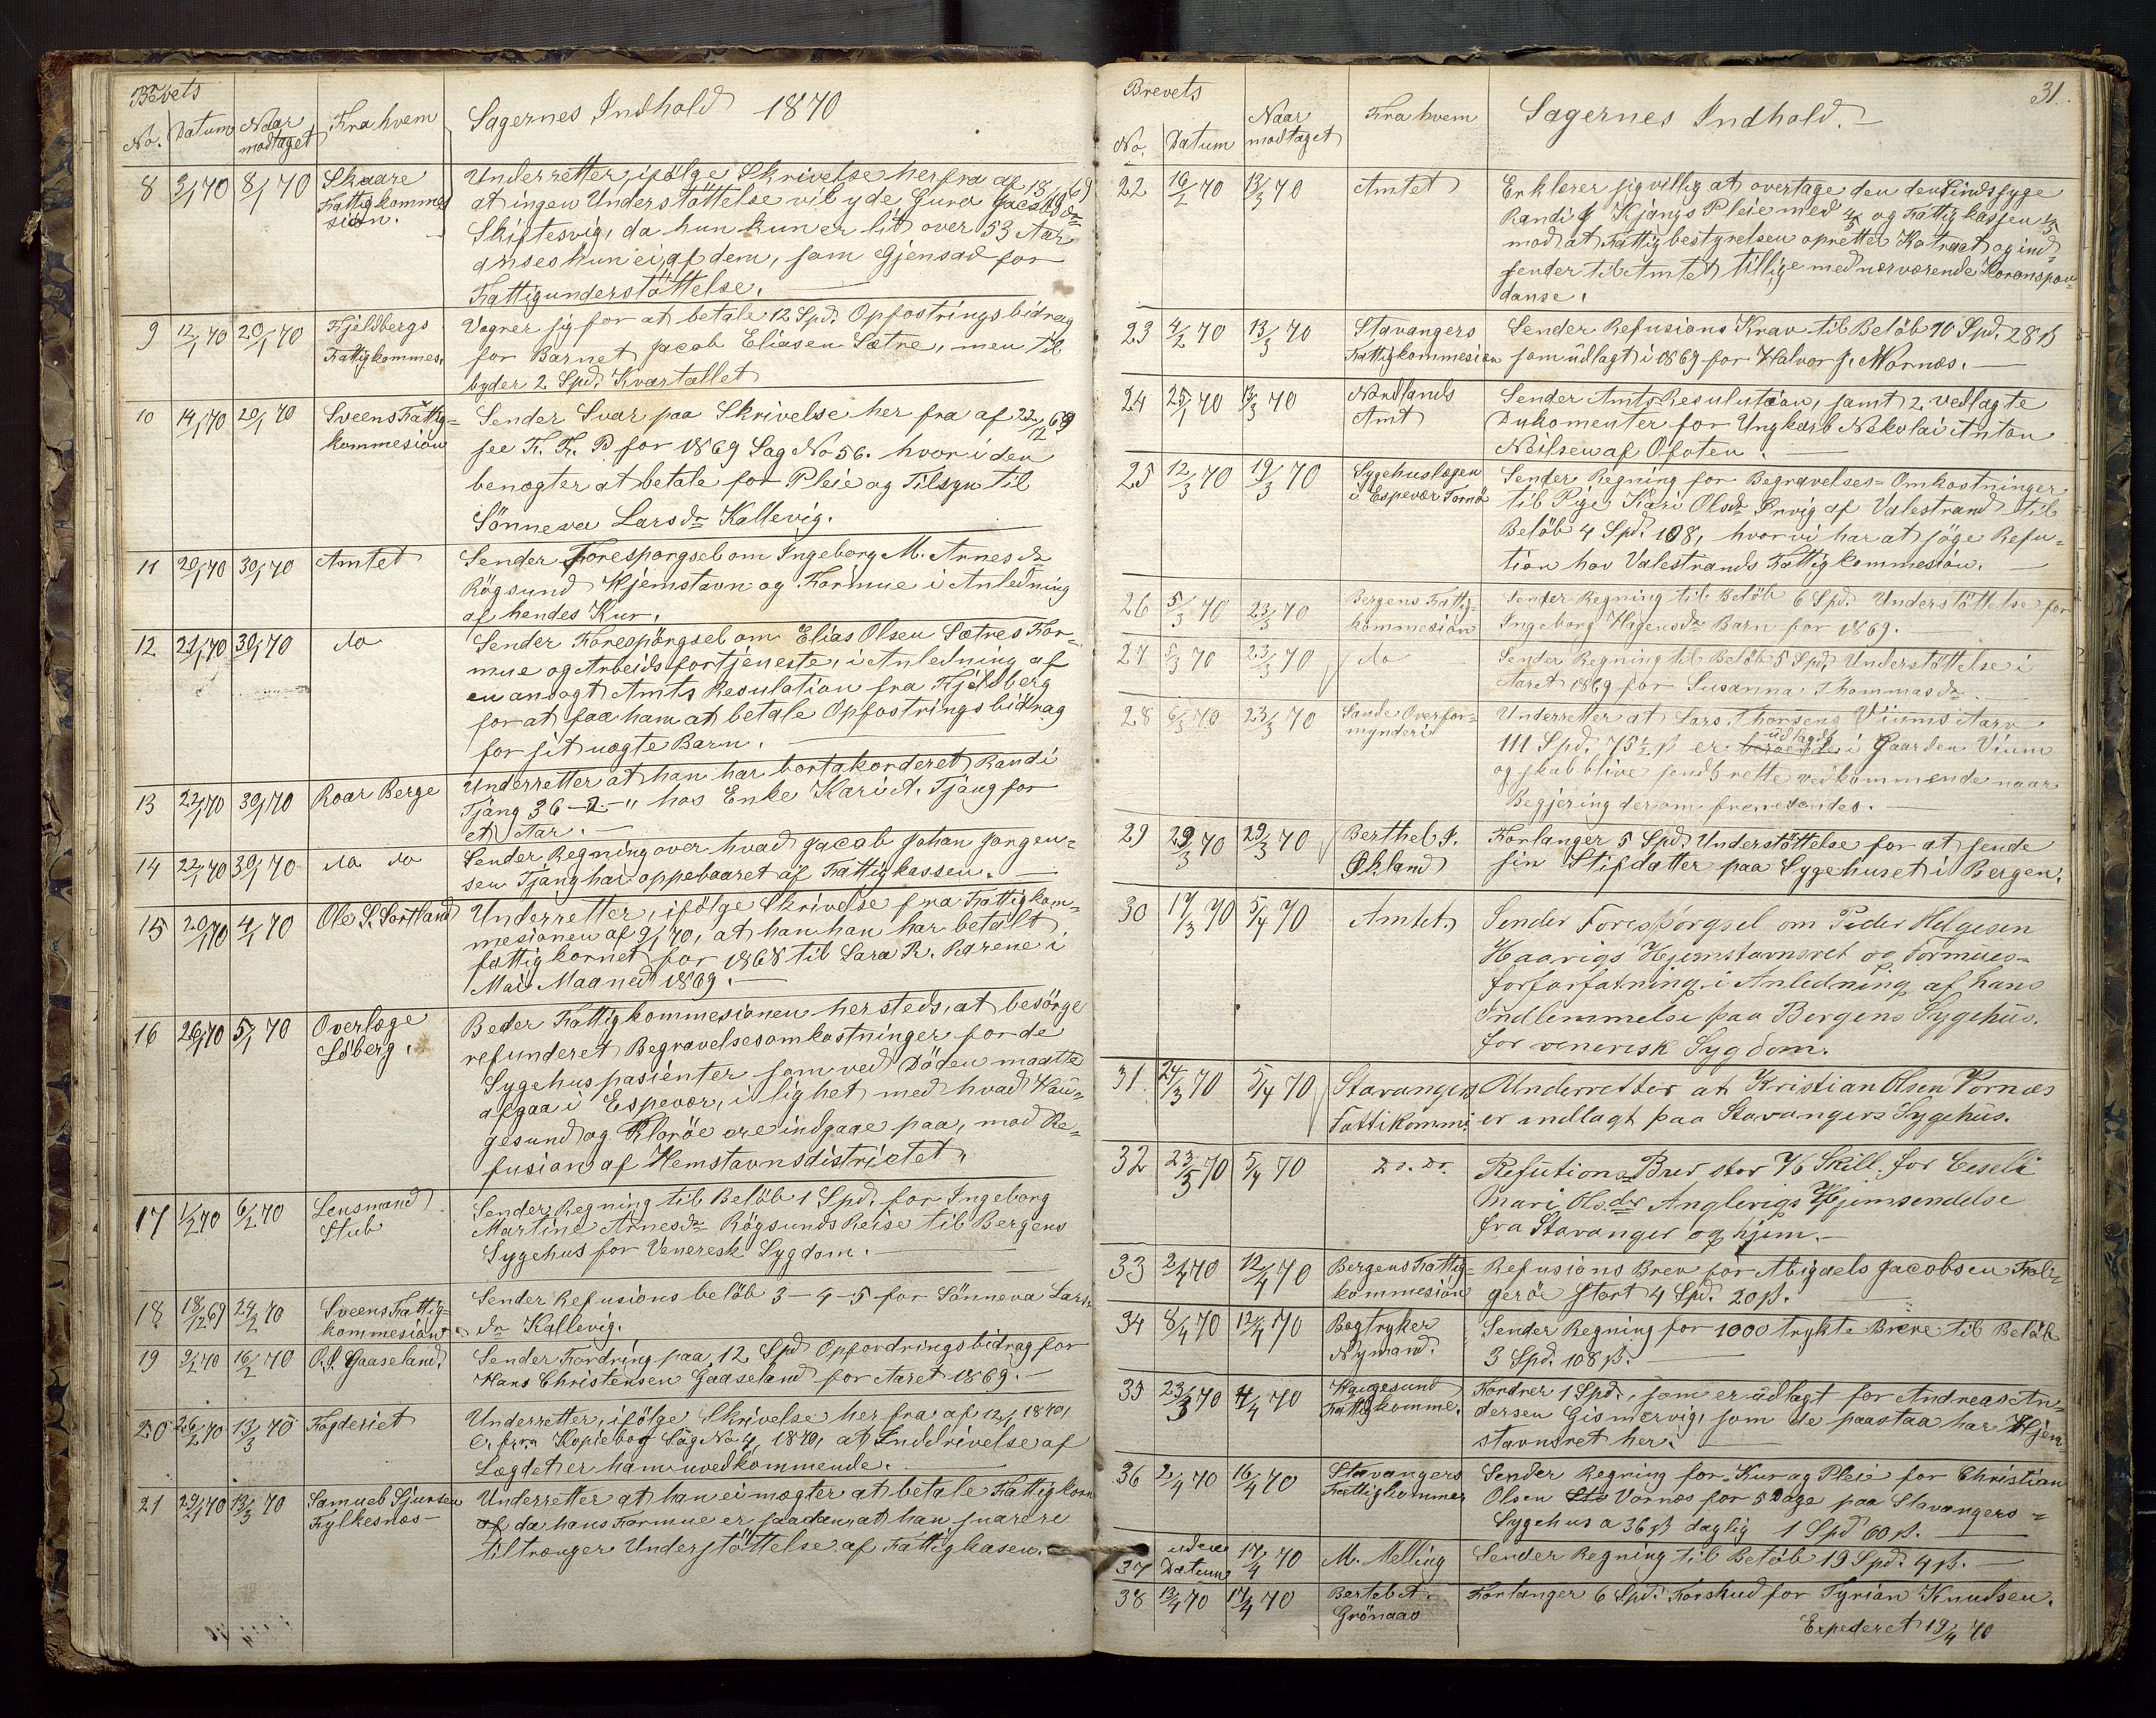 Brevets
No. Datum Naar modtaget Fra hvem Sagernes Indhold 1870
8 3/1 70 8/1 70 Skaare Fattigkommesion. Underretter, ifölge Skrivelse herfra af 18/12 69
at ingen Understöttelse vil yde Guro Jacobsdr
Skiftesvig, da hun kun er lit over 53 Aar
anses hun ei af dem, som Gjensad for
Fattigunderstöttelse.
9 12/1 70 20/1 70 Fjeldbergs Fattigkommes. Vegrer sig for at betale 12 Spd. Opfostringsbidrag
for Barnet Jacob Eliasen Sætre, men til
byder 2 Spd. Kvartallet
10 14/1 70 20/1 70 Sveens Fattigkommesion Sender Svar paa Skrivelse her fra af 22/12 69
see F. K. P for 1869 Sag No 56. hvor i den
benægter at betale for Pleie og Tilsyn til
Sönneva Larsdr Kallevig.
11 20/1 70 30/1 70 Amtet Sender Foresporgsel om Ingeborg M. Arnesdr
Rögsund Hjemstavn og Formue i Anledning
af hendes Kur.
12 21/1 70 30/1 70 do Sender Forespörgsel om Elias Olsen Sætres For-
mue og Arbeidsfortjeneste, i Anledning af
en ansøgt Amts Resulation fra Fjeldberg
for at faa ham at betale Opfostringsbidrag
for sit uægte Barn.
13 22/1 70 30/1 70 Roar Berge Underretter at han har bortakorderet Randi
Tjäng 36-2-" hos Enke Kari A. Tjäng for
et Aar.
14 22/1 70 30/1 70 do do Sender Regning over hvad Jacob Johan Jorgen-
sen Tjäng har oppebaaret af Fattigkassen.
15 20/1 70 4/1 70 Ole S. Sortland Underretter, ifölge Skrivelse fra Fattigkom-
mesionen af 9/1 70, at han han har betalt
fattigkornet for 1868 til Sara R. Rærene i
Mai Maaned 1869.
16 26/1 70 5/1 70 Overlæge Löberg. Beder Fattigkommesionen hersteds, at besörge
refunderet Begravelsesomkostninger for de
Sygehuspasienter som ved Döden maatte
afgaa i Espevær, i lighet med hvad Hau-
gesund og Kloröe ere indgaae paa, mod Re-
fusian af Hemstavnsdistrictet"
17 1/2 70 6/2 70 Lensmand Stub Sender Regning til Belöb 1 Spd. for Ingeborg
Martine Arnesdr Rögsunds Reise til Bergens
Sygehus for Veneresk Sygdom.
18 18/12 69 24/2 70 Sveens Fattigkommesion Sender Refusions belöb 3-4-5 for Sönneva Lars-
dr Kallevig.
19 9/2 70 16/2 70 O. J. Gaaseland. Sender Fordring paa 12 Spd Opfordringsbidrag for
Hans Christensen Gaaseland for Aaret 1869.
20 26/2 70 13/3 70 Fogderiet Underretter, ifölge Skrivelse her fra af 12/1 1870,
Kopiebog Sag No 4, 1870, at Inddrivelse af
Lægdet er ham uvedkommende.
21 29/1 70 13/3 70 Samueb Sjursen Fylkesnæs Underretter at han ei mægter at betale Fattigkorn
af da hans Formue er saadan, at han snarere
tiltrænger Understöttelse af Fattigkasen.
31.
Brevets
No. Datum Naar modtaget Fra hvem Sagernes Indhold.
22 10/2 70 13/3 70 Amtet Erklærer sig villig at overtage den den Sindssyge
Randi Kjängs Pleie med 4/5 og Fattigkassen 1/5
mod at Fattigbestyrelsen opretter Kotraat, og ind-
sender til Amtet tillige med nærværende Koronspon-
danse.
23 4/2 70 13/3 70 Stavangers Fattigkommesion Sender Refusions Krav til Belöb 10 Spd. 28 ß
som udlagt i 1869 for Halvor J. Mornæs.
24 25/1 70 13/3 70 Nordlands Amt Sender Amts Resulution, samt 2 vedlagte
Dukomenter for Ungkarb Nekolai Anton
Neilsen af Ofoten.
25 12/3 70 19/3 70 Sygehuslægen i Espevær Tornö Sender Regning for Begravelses-Omkostninger
til Pige Kari Olsdr Ørvig af Valestrand til
Belöb 4 Spd. 108, hvor vi har at söge Refu-
tion hos Valestrands Fattigkommesion.
26 5/3 70 23/3 70 Bergens Fattigkommesion Sender Regning til Belöb 6 Spd. Understöttelse for
Ingeborg Hagensdr Barn for 1869.
27 5/3 70 23/3 70 do Sender Regning til Belöb 5 Spd. Understöttelse i
Aaret 1869 for Susanna Thommasdr.
28 6/3 70 23/3 70 Sande Overformynderi Underretter at Lars Thorsens Viums Aarv
111 Spd. 75 1/2 ß er beroende udlagdt i Gaarden Vium
og skab blive sendt rette vedkommende naar
Begjering derom fremsendes.
29 29/3 70 29/3 70 Berthel J. Økland Forlanger 5 Spd. Understöttelse for at sende
sin Stifdatter paa Sygehuset i Bergen.
30 17/3 70 5/4 70 Amtet. Sender Foresporgsel om Peder Helgesen
Haavigs Hjemstavnsret og Formues-
forforfatning i Anledning af hans
Indlemmelse paa Bergens Sygehus.
for venerisk Sygdom.
31 24/3 70 5/4 70 Stavangers Fattikommi: Underretter at Kristian Olsen Vornæs
er indlagt paa Stavangers Sygehus.
32 23/3 70 5/4 70 Do. Do. Refutions Brev stor 76 Skill. for Ceseli
Mari Ols.der Anglevigs Hjemsendelse
fra Stavanger og hjem.
33 2/4 70 12/4 70 Bergens Fattigkommesion Refusions Brev for Abigaels Jacobsen Folr-
geröe stort 4 Spd. 20 ß.
34 8/4 70 12/4 70 Bogtryker Nymand. Sender Regning for 1000 trykte Breve til Belöb
3 Spd. 108 ß.
35 23/3 70 4/4 70 Haugesund Fattigkomme. Fordrer 1 Spd., som er udlagt for Andreas An-
dersen Gismervig, som de paastaa har Hjem
stavnsret her.
36 2/4 70 16/4 70 Stavangers Fattigkommes Sender Regning for Kur og Pleie for Christian
Olsen Vornæs for 5 Dage paa Stavangers
Sygehus a 36 ß daglig 1 Spd 60 ß.
37 uden Datum 17/4 70 M. Melling Sender Regning til Belöb 19 Spd. 4 ß.
38 13/4 70 17/4 70 Bertel A. Grönaas Forlanger 6 Spd. Forskud for Tyrian Knudsen.
Expederet 19/4 70